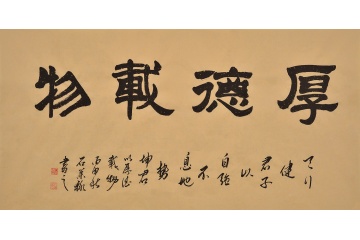 厚德載物
天行
健
君子
以
自強
不
息地
勢
坤君
以厚德
載物
丙申秋
書之